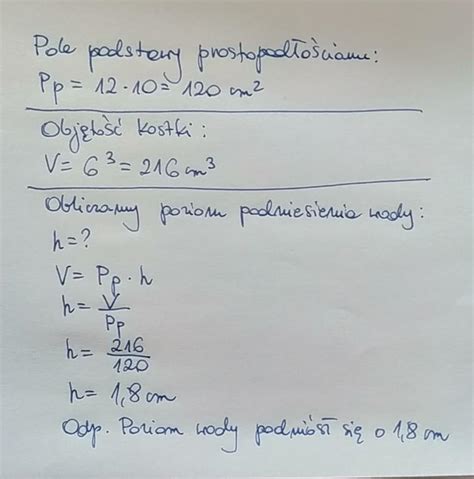 Pole podstawy prostopadłościanu:
Pp = 12 · 10 = 120 cm²
Objętość kostki:
V = 6³ = 216 cm³
Obliczamy poziom podniesienia wody:
h = ?
V = Pp · h
h = V/Pp
h = 216/120
h = 1,8 cm
Odp. Poziom wody podniósł się o 1,8 cm